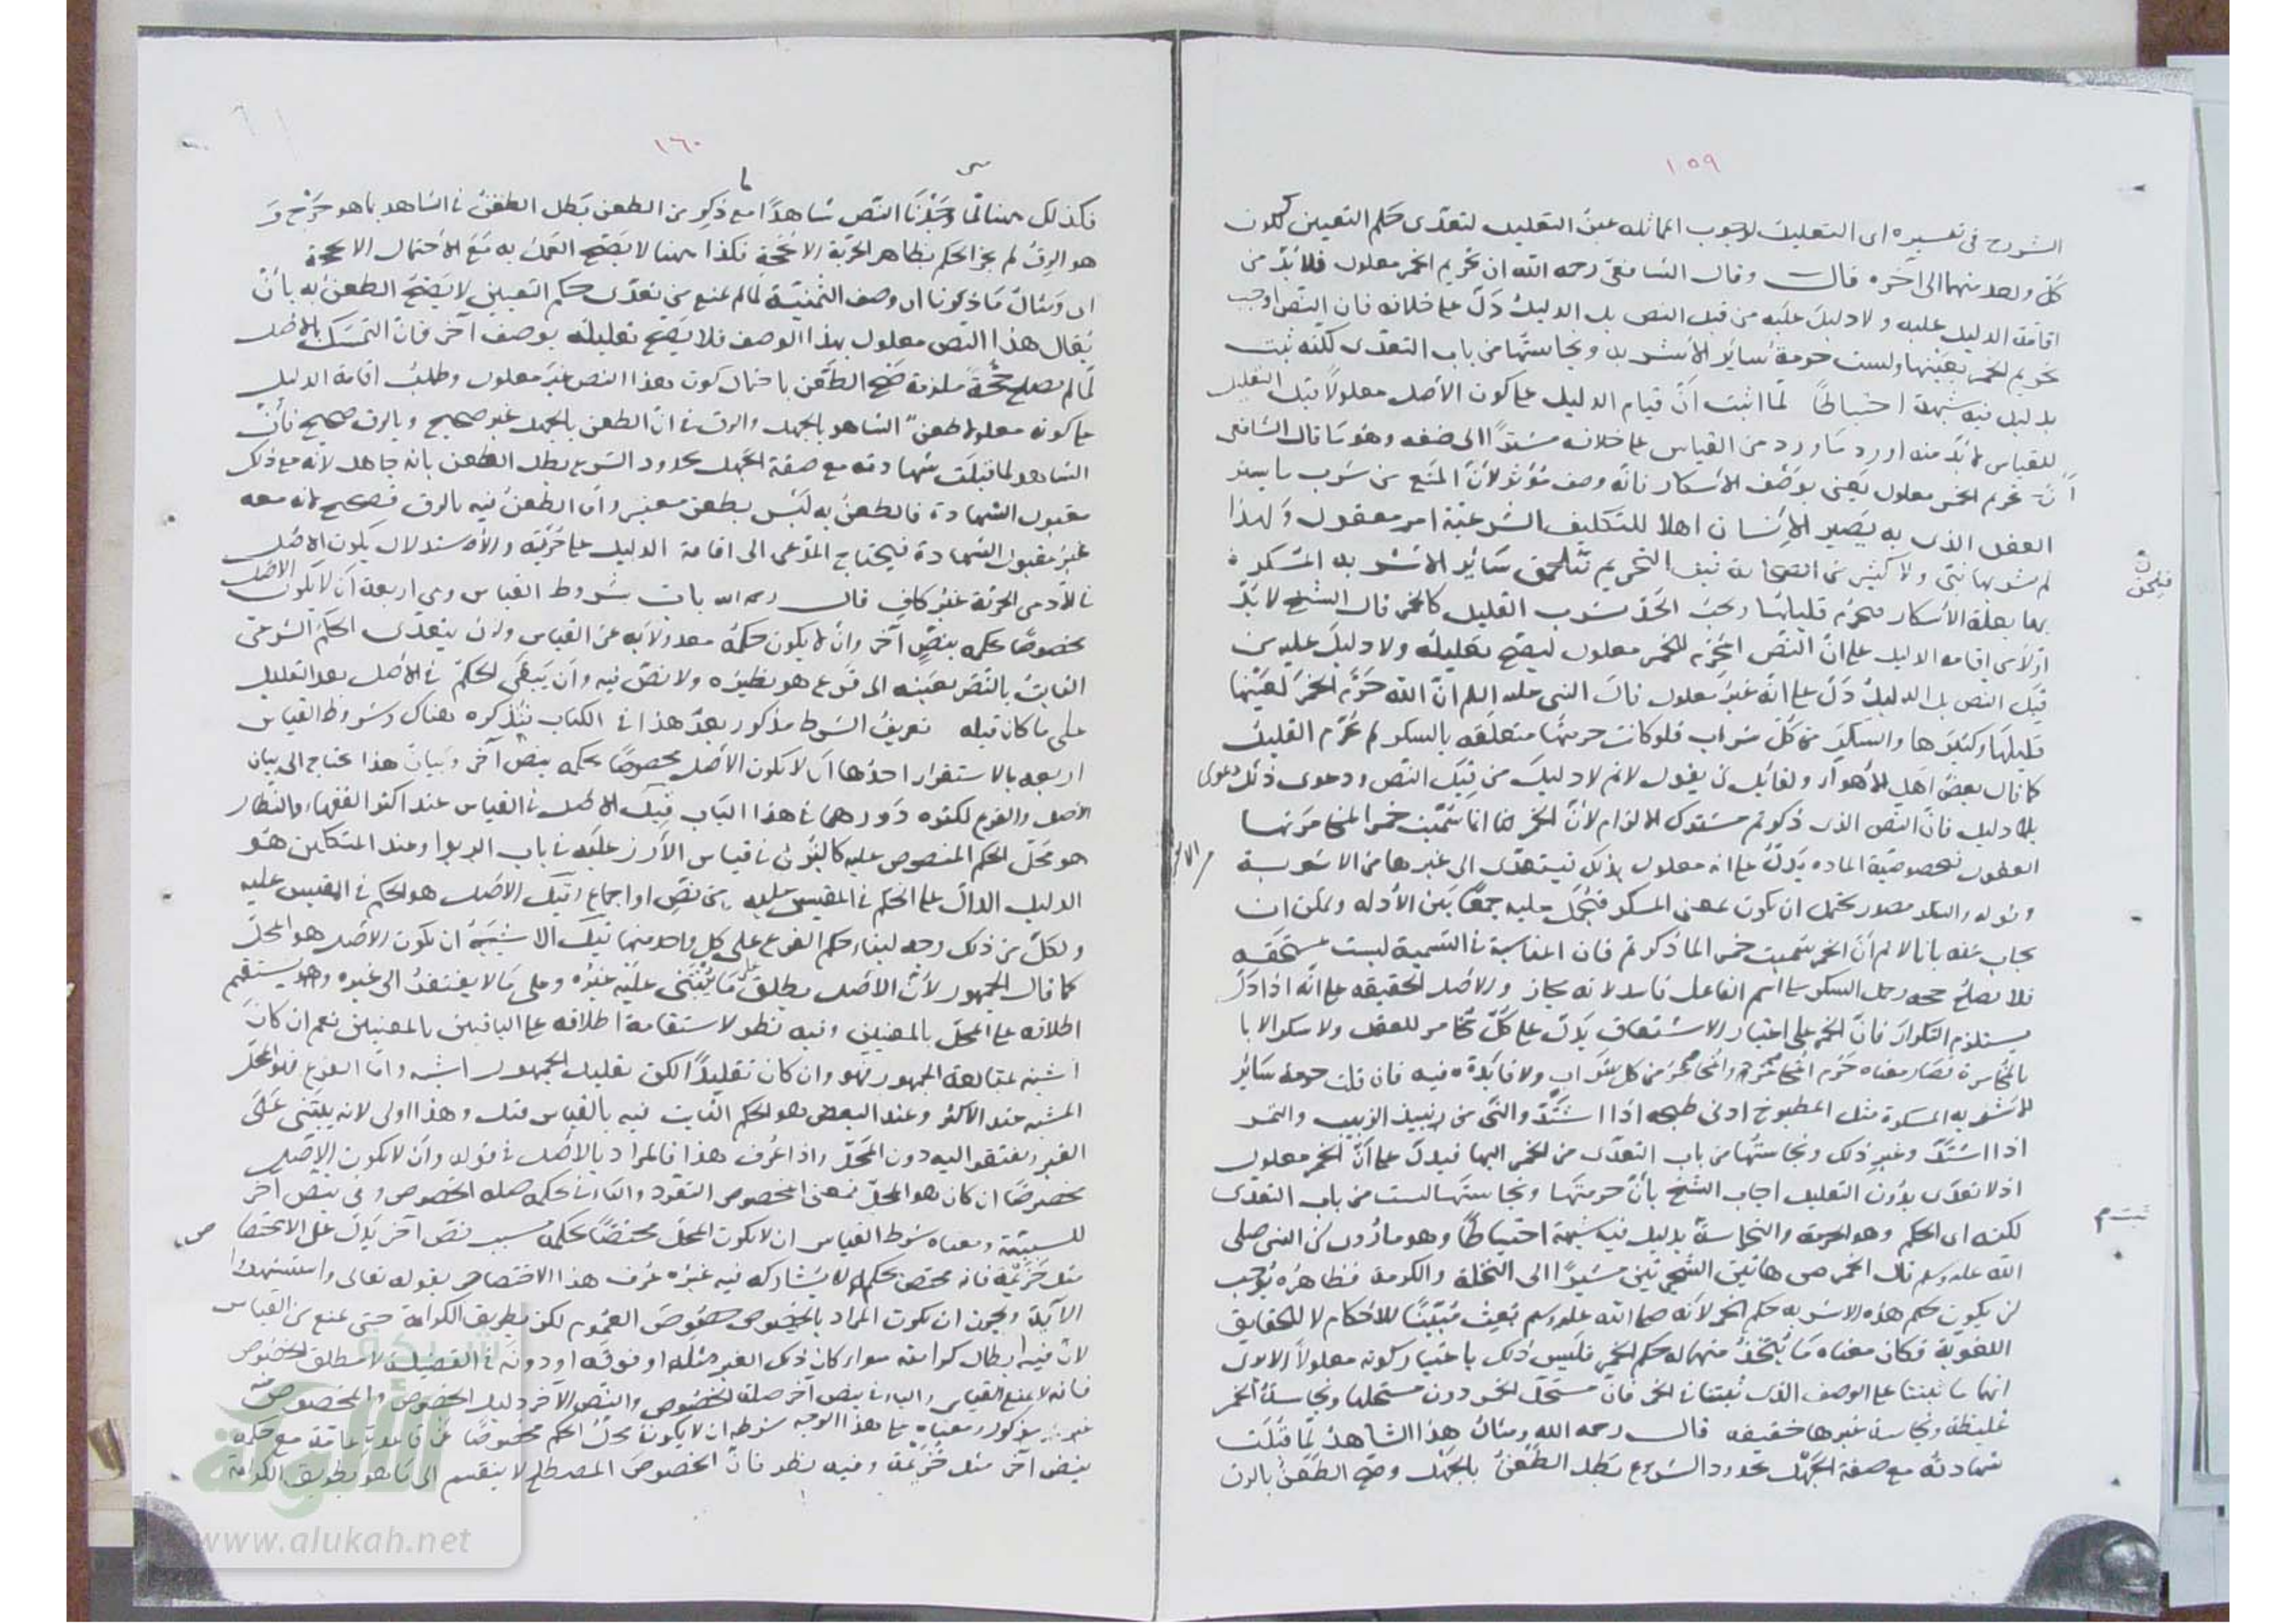 ١٥٩
الشروح فى تفسيره اى التعليل لوجوب المماثله عين التعليل لتعدّى حكم التعيين لكون
كل واحد منهما الى آخره قال وقال الشافعى رحمه الله ان تحريم الخمر معلول فلا بُدّ من
اقامة الدليل عليه ولا دليل عليه من قبل النص بل الدليل دَلّ على خلافه فان النص اوجب
تحريم الخمر بعينها وليست حرمة سائر الاشربه ونجاستها من باب التعدّى لكنّه ثبت
بدليل فيه شبهة احتياطًا لما اثبت انّ قيام الدليل على كون الأصل معلولًا قبل التعليل
للقياس لابُدّ منه اورد ما ورد من القياس على خلافه مشيرًا الى ضعفه وهو ما قال الشافعى
انّ تحريم الخمر معلول يعنى بوصف الاسكار فانّه وصف مؤثر لأنّ المنع عن شرب ما يستر
العقل الذى به يصير الإنسان اهلا للتكليف الشرعية امر معقول ولهذا
لم يشربها نبى ولا كثير من الصحابة قبل التحريم فيلحق سائر الاشربه المسكره
بها بعلة الاسكار فيحرم قليلها ويجب الحدّ بشرب القليل كالخمر قال الشيخ لا بُدّ
اوّلا من اقامه الدليل على انّ النصّ المحرّم للخمر معلول ليصحّ تعليله ولا دليل عليه من
قبل النص بل الدليل دَلّ على انّه غير معلول قال النبى عليه السلم انّ الله حرّم الخمر لعينها
قليلها وكثيرها والسكر من كل شراب فلو كانت حرمتها متعلقه بالسكر لم يحرم القليل
كما قال بعض اهل الأهواء ولقائل ان يقول لانم لا دليل من قبل النصّ ودعوى ذلك دعوى
بلا دليل فانّ النصّ الذى ذكرتم مشترك الالزام لأنّ الخمر انما سمّيت خمرا لمخامرتها
العقول فخصوصيّة الماده يدلّ على انه معلول بذلك فيتعدّى الى غيرها من الاشربة
وقوله والسكر مصدر يحتمل ان يكون بمعنى المسكر فيُحمل عليه جمعًا بين الأدله ويمكن ان
يجاب عنه بانا لا نم انّ الخمر سميت خمرا لما ذكرتم فان المناسبة فى التسمية ليست بمتحققه
فلا يصلح حجه وحمل السكر على اسم الفاعل فاسد لانه مجاز والأصل الحقيقه على انّه اذا دَلّ
يستلزم التكرار فانّ الخمر على اعتبار الاشتقاق يدلّ على كلّ مخامر للعقل ولا سكر الا با
بالمخامرة فصار معناه حرّم المخامر والمخامر من كل شراب ولا فايدة فيه فان قلت حرمة سائر
الاشربه المسكرة مثل المطبوخ ادنى طبخه اذا اشتدّ والنّى من نبيذ الزبيب والتمر
اذا اشتدّ وغير ذلك ونجاستها من باب التعدّى من الخمر اليها فيدلّ على أنّ الخمر معلول
اذ لا تعدّى بدون التعليل اجاب الشيخ بأنّ حرمتها ونجاستها ليست من باب التعدّى
لكنه اى الحكم وهو الحرمة والنجاسة بدليل فيه شبهة احتياطًا وهو ما روى عن النبى صلى
الله عليه وسلم قال الخمر من هاتين الشجرتين مشيرًا الى النخلة والكرمة فظاهره يوجب
ان يكون حكم هذه الاشربه حكم الخمر لانه صلى الله عليه وسلم بُعث مُبيّنًا للأحكام لا للحقايق
اللغوية فكان معناه ما يُتّخذ منهما له حكم الخمر فليس ذلك باعتبار كونه معلولًا الا ترى
انها ما ثبتتا على الوصف الذى ثبتتا فى الخمر فانّ مستحلّ الخمر دون مستحلها ونجاسة الخمر
غليظة ونجاسة غيرها خفيفه قال رحمه الله ومثال هذا الشاهد لمّا قُبلت
شهادته مع صفة الجهل بحدود الشرع بطل الطعن بالجهل وصحّ الطعن بالرق
١٦٠
فكذلك ههنا لمّا وجدنا النصّ شاهدًا مع ما ذكر من الطعن بطل الطعن فى الشاهد بما هو جرح و
هو الرقّ لم يجز الحكم بظاهر الحريّة الا بحجة فكذا ههنا لا يصحّ العمل به مع الاحتمال الا بحجة
اى ومثال ما ذكرنا ان وصف الثمنيّة لما لم يمنع من تعدّى حكم التعيين لا يصحّ الطعن به بأن
يُقال هذا النصّ معلول بهذا الوصف فلا يصحّ تعليله بوصف آخر فانّ التمسك بالأصل
لمّا لم يصلح حجّة ملزمة صحّ الطعن باحتمال كون هذا النصّ غير معلول وطلب اقامة الدليل
على كونه معلولا طعن الشاهد بالجهل والرق فى انّ الطعن بالجهل غير صحيح وبالرق صحيح فانّ
الشاهد لما قبلت شهادته مع صفة الجهل بحدود الشرع بطل الطعن بانه جاهل لانّه مع ذلك
مقبول الشهادة فالطعن به ليس بطعن معتبر وامّا الطعن فيه بالرق فصحيح لانه معه
غير مقبول الشهادة فيحتاج المدّعى الى اقامة الدليل على حرّيته والاستدلال بكون الاصل
فى الآدمى الحرّية غير كافٍ قال رحمه الله باب شروط القياس وهى اربعة ان لا يكون الاصل
مخصوصًا بحكمه بنصّ آخر وان لا يكون حكمه معدولا به عن القياس وان يتعدّى الحكم الشرعى
الثابت بالنصّ بعينه الى فرع هو نظيره ولا نصّ فيه وان يبقى الحكم فى الأصل بعد التعليل
على ما كان قبله تعريف الشرط مذكور بعد هذا فى الكتاب نذكره هناك وشروط القياس
اربعه بالاستقرار احدها ان لا يكون الأصل مخصوصًا بحكمه بنصّ آخر وبيان هذا يحتاج الى بيان
الأصل والفرع لكثره دورهما فى هذا الباب قيل الاصل فى القياس عند اكثر الفقهاء والنظار
هو محلّ الحكم المنصوص عليه كالبُرّ فى قياس الأرز عليه فى باب الربوا وعند المتكلمين هو
الدليل الدالّ على الحكم فى المقيس عليه من نصّ او اجماع وقيل الاصل هو الحكم فى المقيس عليه
ولكلّ من ذلك وجه لبناء حكم الفرع على كل واحد منها قيل الاشبه ان يكون الأصل هو المحلّ
كما قال الجمهور لأنّ الأصل يطلق على ما يُبتنى عليه غيره وعلى ما لا يفتقر الى غيره ويستقيم
اطلاقه على المحلّ بالمعنيين وفيه نظر لاستقامة اطلاقه على الباقيين بالمعنيين نعم ان كان
اشبه بمتابعة الجمهور فهو وان كان تقليدًا لكن تقليد الجمهور اشبه وامّا الفرع فهو المحلّ
المشبه عند الاكثر وعند البعض هو الحكم الثابت فيه بالقياس وهذا اولى لانه يبتنى على
الغير ويفتقر اليه دون المحلّ واذا عُرف هذا فالمراد بالأصل فى قوله وأن لا يكون الأصل
مخصوصًا ان كان هو المحلّ فمعنى الخصوص التفرد والباء فى بحكمه صله الخصوص وفى بنصّ آخر
للسببيّة ومعناه شرط القياس ان لا يكون المحلّ مختصًّا بحكمه بسبب نصّ آخر يدلّ على الاختصا
مثل خزيمة فانه مختصّ بحكم لا يشاركه فيه غيره عُرف هذا الاختصاص بقوله تعالى واستشهدوا
الآية ويجوز ان يكون المراد بالخصوص خصوص العموم لكن بطريق الكرامة حتى يمنع من القياس
لان فيه ابطال كرامته سواء كان ذلك الغير مثله او فوقه او دونه فى الفضيلة لا مطلق الخصوص
فانه لا يمنع القياس والباء فى بنصّ آخر صلة الخصوص والنصّ الآخر دليل الخصوص والمخصوص منه
غير مذكور ومعناه على هذا الوجه شرطه ان لا يكون محلّ الحكم مخصوصًا عن قاعدة عامّة مع حكمه
بنصّ آخر مثل خزيمة وفيه نظر فانّ الخصوص المصطلح لا ينقسم الى ما هو بطريق الكرامة
شبكة
الألوكة
www.alukah.net